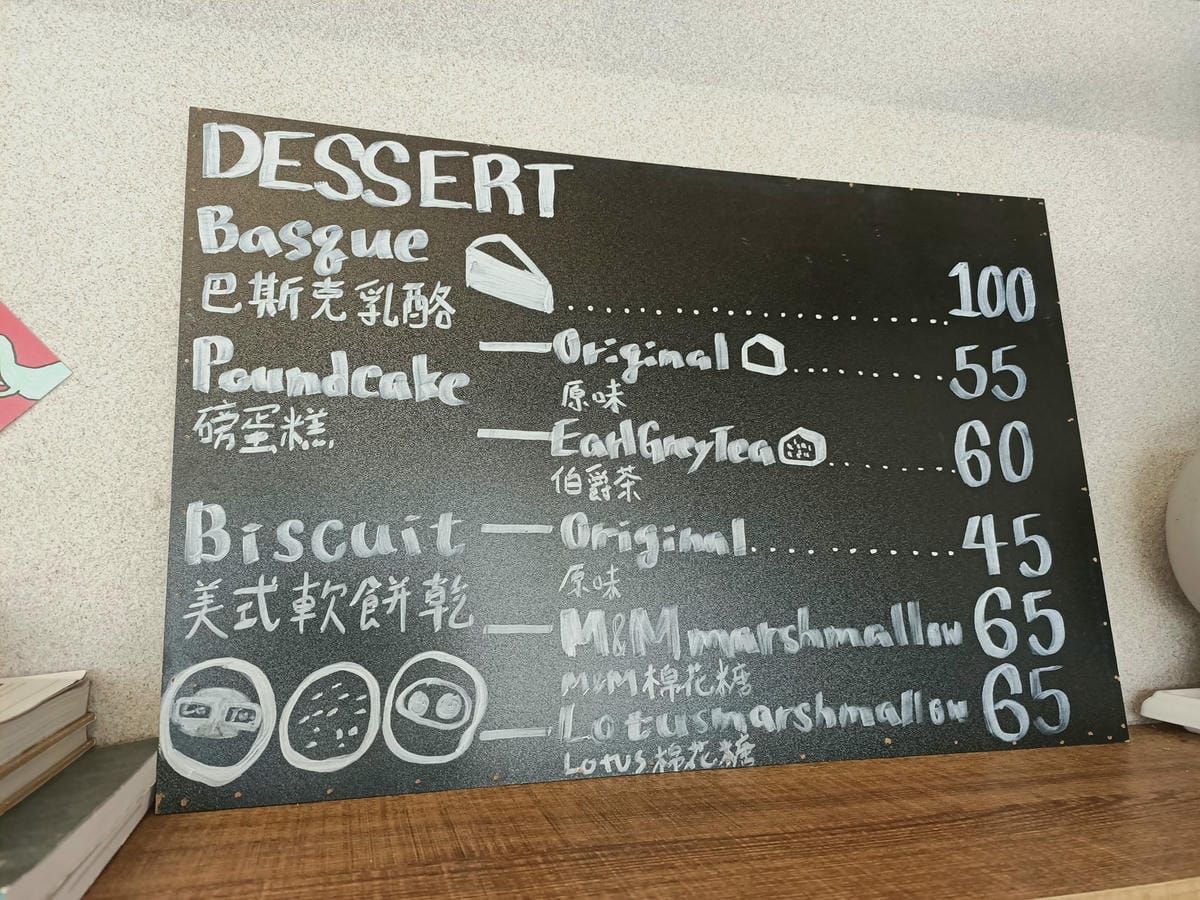 DESSERT
Basque
巴斯克乳酪 100
Poundcake — Original 55
磅蛋糕 原味
— EarlGreyTea 60
伯爵茶
Biscuit — Original 45
美式軟餅乾 原味
— M&M marshmallow 65
M&M 棉花糖
— Lotus marshmallow 65
Lotus 棉花糖